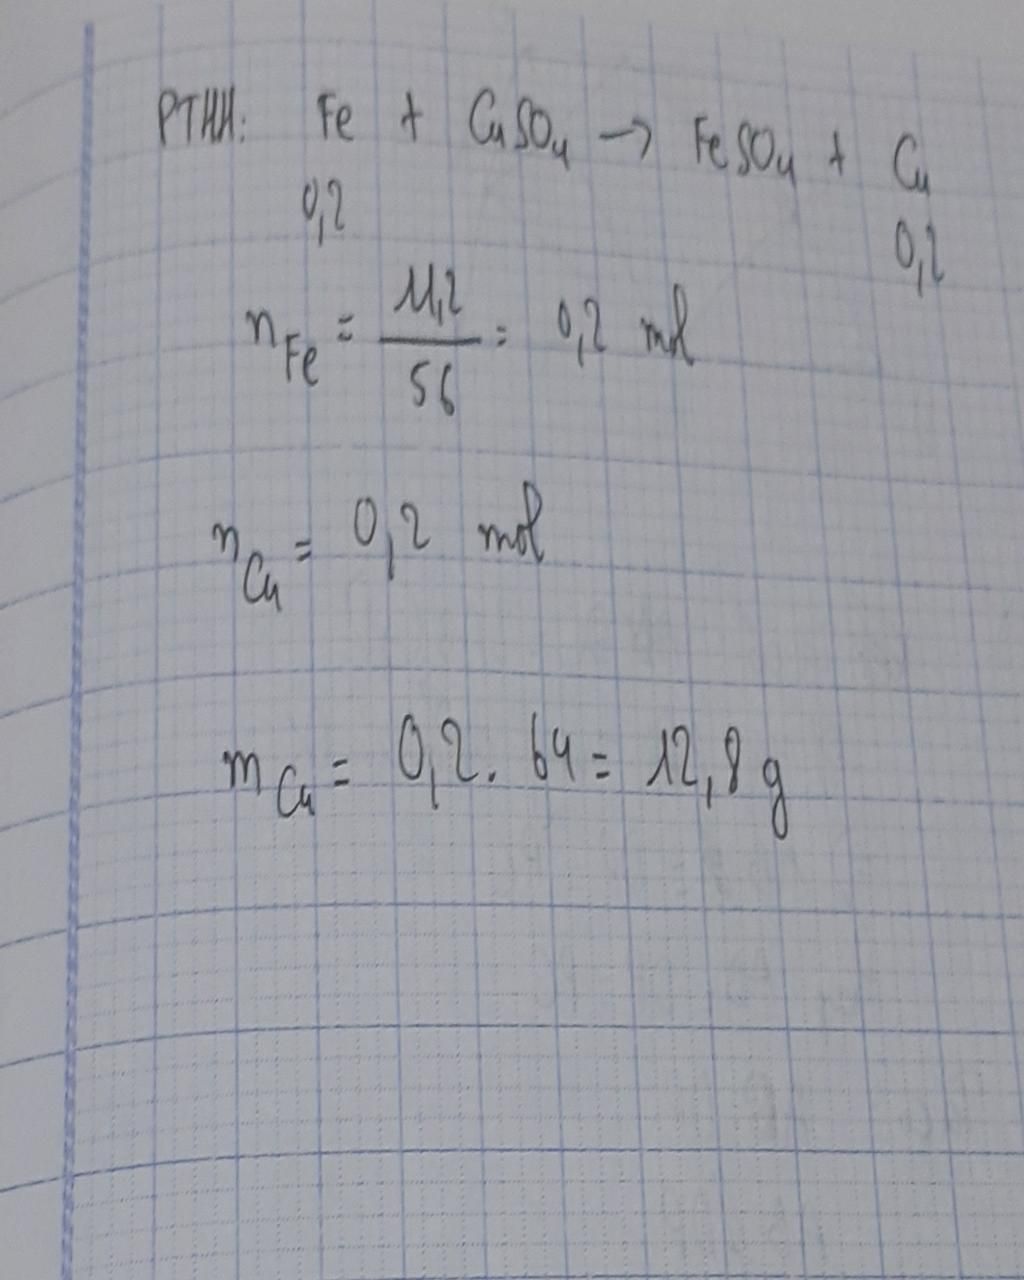 PTHH: Fe + CuSO4 → FeSO4 + Cu
0,2 0,2
nFe = 11,2/56 = 0,2 mol
nCu = 0,2 mol
mCu = 0,2. 64 = 12,8 g